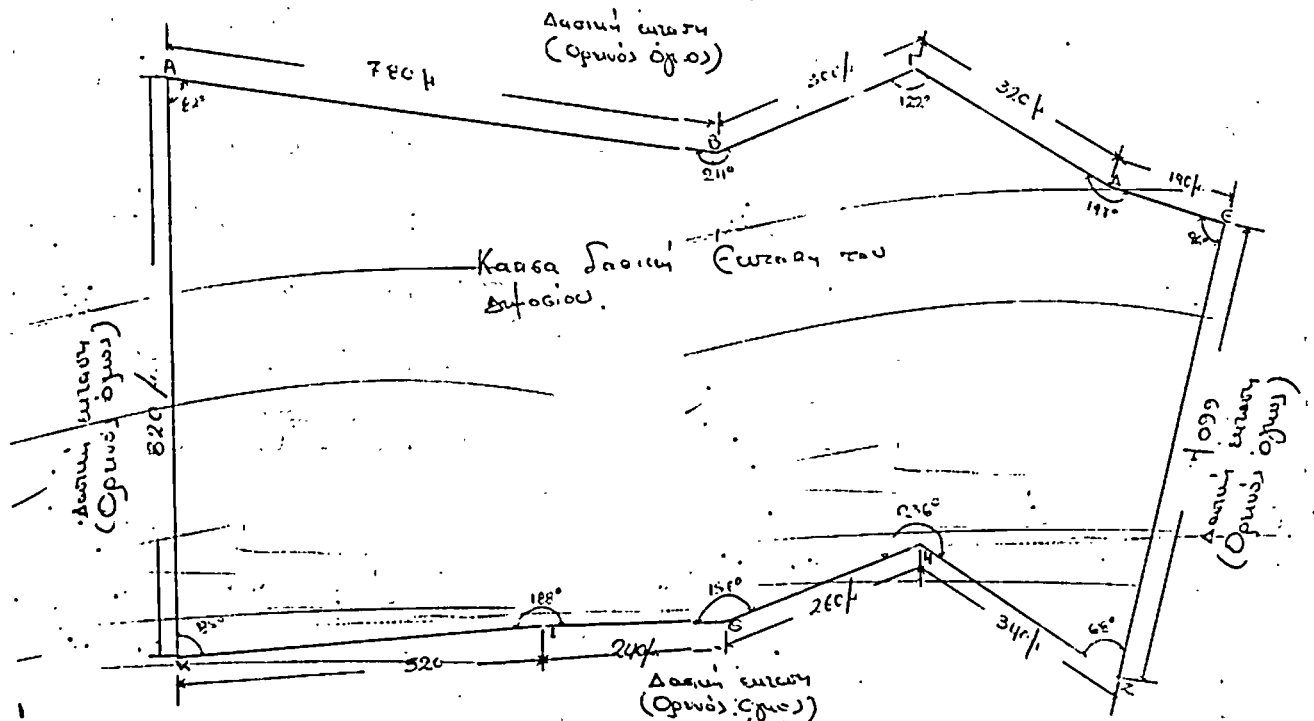 Δασική έκταση
(Ορεινός όγκος)
Α
780 μ
Β
211°
Γ
122°
320 μ
Δ
190 μ
Ε
Καμμένη δασική έκταση του
Δημοσίου.
Δασική έκταση
(Ορεινός όγκος)
820 μ
660 μ
Δασική έκταση
(Ορεινός όγκος)
236°
Η
188°
Ι
Θ
260 μ
340 μ
68°
Ζ
Κ
520
240 μ
Δασική έκταση
(Ορεινός όγκος)